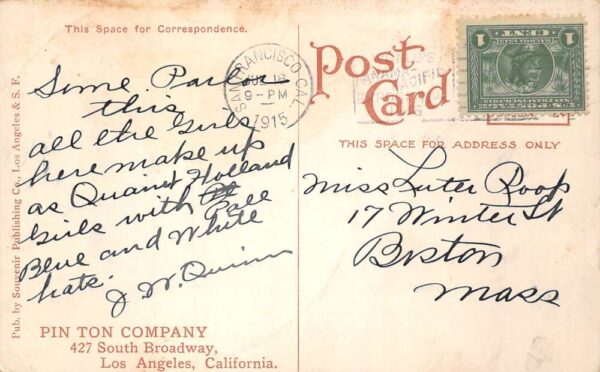 This Space for Correspondence.
SAN FRANCISCO, CAL.
9-PM
1915
Post Card
1 CENT 1
THIS SPACE FOR ADDRESS ONLY
Some Parlor
this
all the girls
here make up
as Quaint Holland
Girls with Pale
Blue and White
hats.
J. W. Quinn
Miss Luter Roop
17 Winter St
Boston
Mass
PIN TON COMPANY
427 South Broadway,
Los Angeles, California.
Pub. by Souvenir Publishing Co., Los Angeles & S. F.